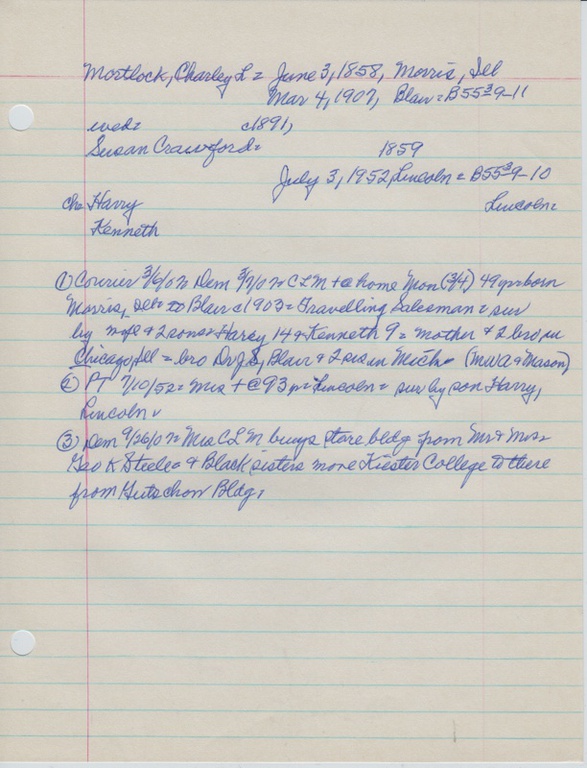 Mortlock, Charley L = June 3, 1858, Morris, Ill
Mar 4, 1907, Blair = B55³9-11
wed= c1891,
Susan Crawford= 1859
July 3, 1952, Lincoln = B55³9-10
ch= Harry Lincoln=
Kenneth
① Courier 3/6/07= Dem 3/7/07= CLM +@ home Mon (3/4) 49 yr= born
Morris, Ill= to Blair c1903= Travelling Salesman= sur
by wife & 2 sons= Harry 14 & Kenneth 9 = mother & 2 bro in
Chicago, Ill = bro Dr J S, Blair & 2 sis in Mich= (MWA & Mason)
② PT 7/10/52= Mrs +@ 93 in Lincoln= sur by son Harry,
Lincoln
③ Dem 9/26/07= Mrs CLM buys store bldg from Mr & Mrs
Geo K Steele= & Black sisters move Kiester College to there
from Gutschow Bldg,